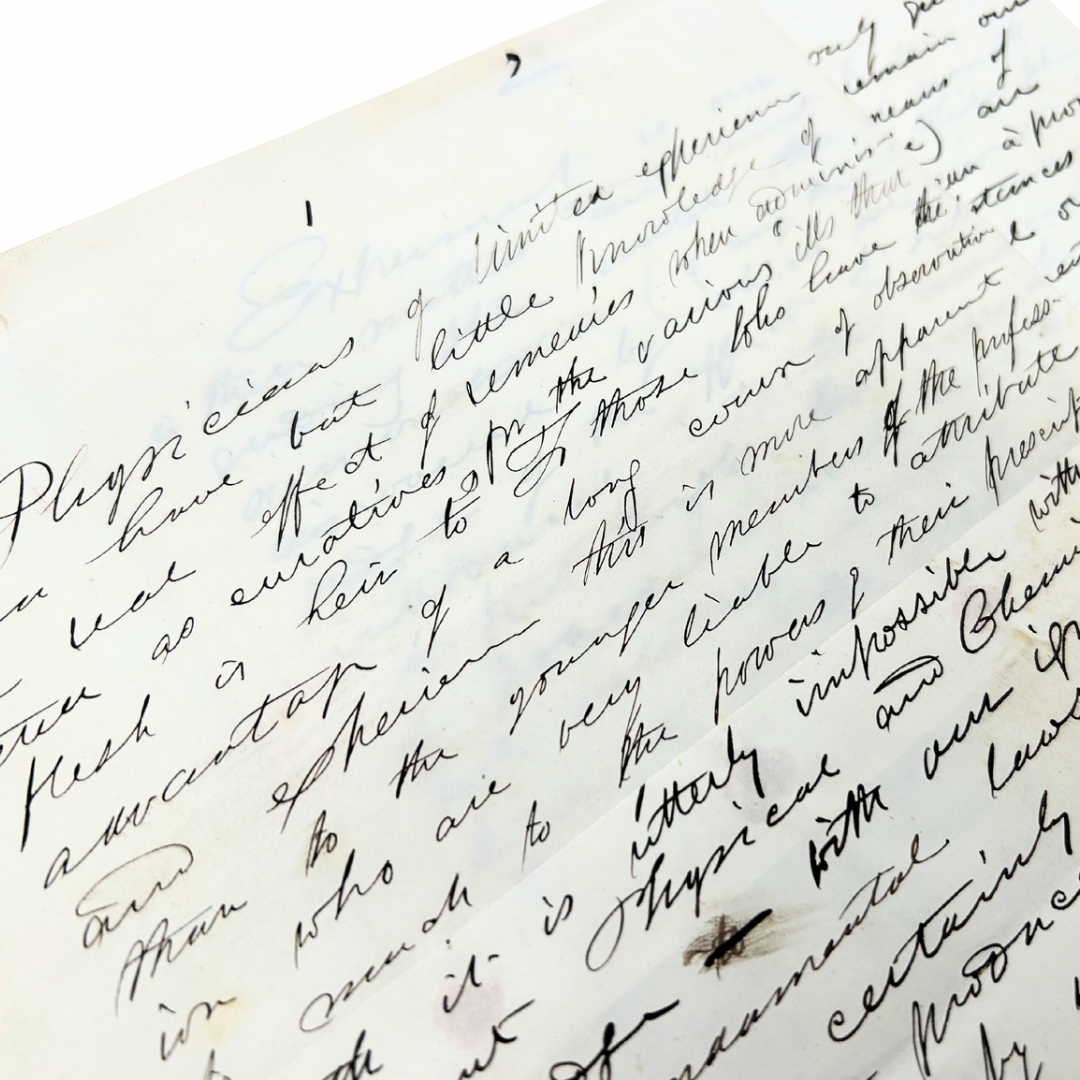 1
Physicians of limited experience
have but little knowledge of
real effect of remedies when adminis-
as curatives for the various ills that
flesh is heir to To those who have the
advantage of a long course of observation
and experience this is more apparent
than to the younger members of the profess-
ion who are very liable to attribute
much to the powers of their prescript
it is utterly impossible with
physical and Chemi
with our
damental laws
certainly
produc
by
2
only
remain our
means of
are
stances